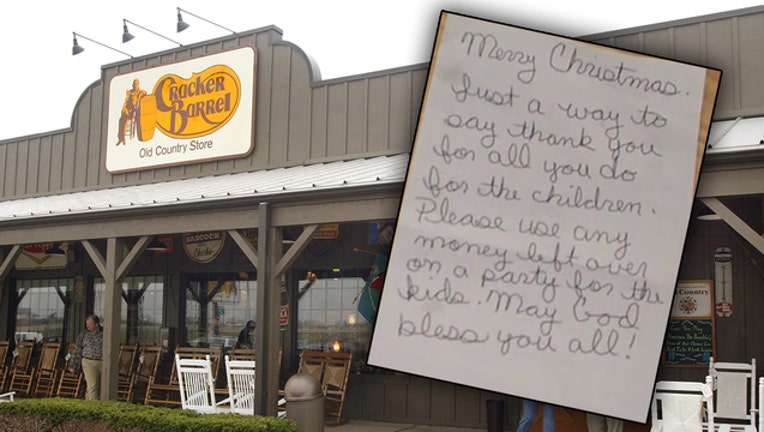 Cracker
Barrel
Old Country Store
Merry Christmas.
Just a way to
say thank you
for all you do
for the children.
Please use any
money left over
on a party for the
kids. May God
bless you all!
BABCOCK
Country